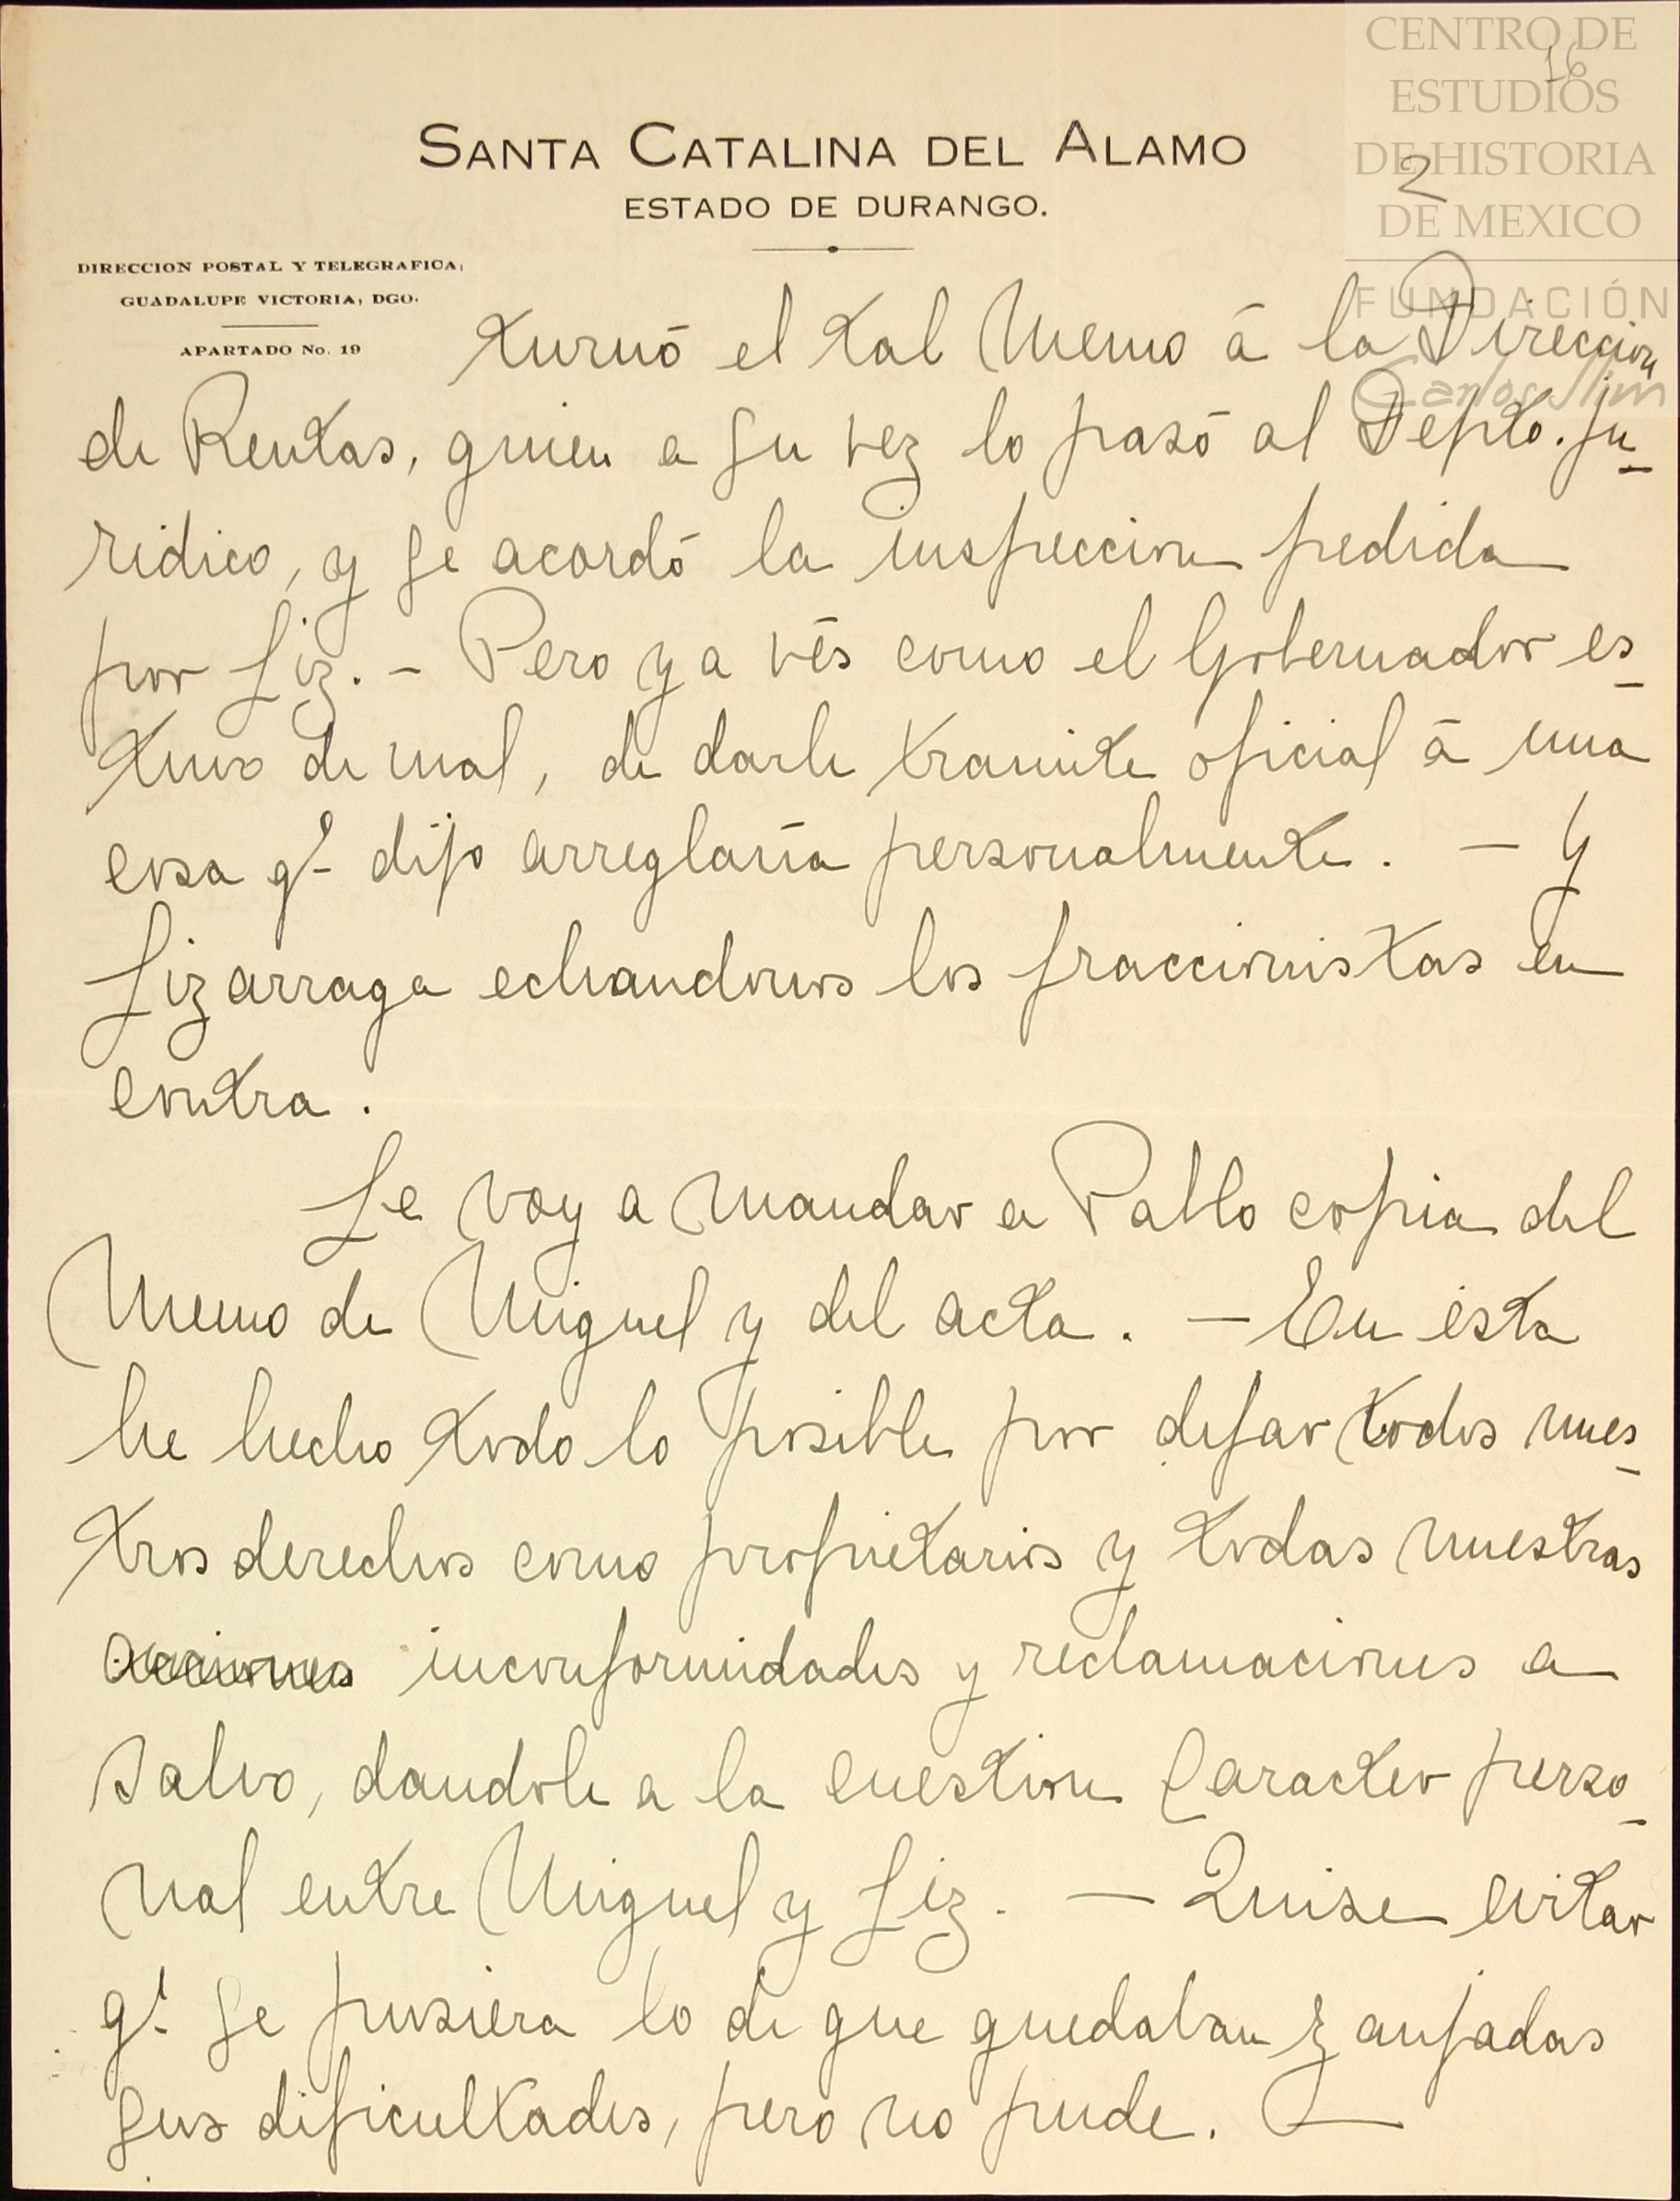 CENTRO DE
ESTUDIOS
DE HISTORIA
DE MEXICO
FUNDACIÓN
Carlos Slim
16
2
SANTA CATALINA DEL ALAMO
ESTADO DE DURANGO.
DIRECCION POSTAL Y TELEGRAFICA,
GUADALUPE VICTORIA, DGO.
APARTADO No. 19
turnó el tal Memo á la Direccion
de Rentas, quien a su vez lo pasó al Depto. Ju-
ridico, y se acordó la inspeccion pedida
por Liz. - Pero ya vés como el Gobernador es-
tuvo de mal, de darle tramite oficial á una
cosa qe dijo arreglaría personalmente. — Y
Lizarraga echandonos los fraccionistas en
contra.
Le voy a mandar a Pablo copia del
Memo de Miguel y del acta. — En ésta
he hecho todo lo posible por dejar todos nues-
tros derechos como propietarios y todas nuestras
acciones inconformidades y reclamaciones a
salvo, dandole a la cuestion caracter perso-
nal entre Miguel y Liz. — Quise evitar
qe se pusiera lo de que quedaban zanjadas
sus dificultades, pero no pude. —